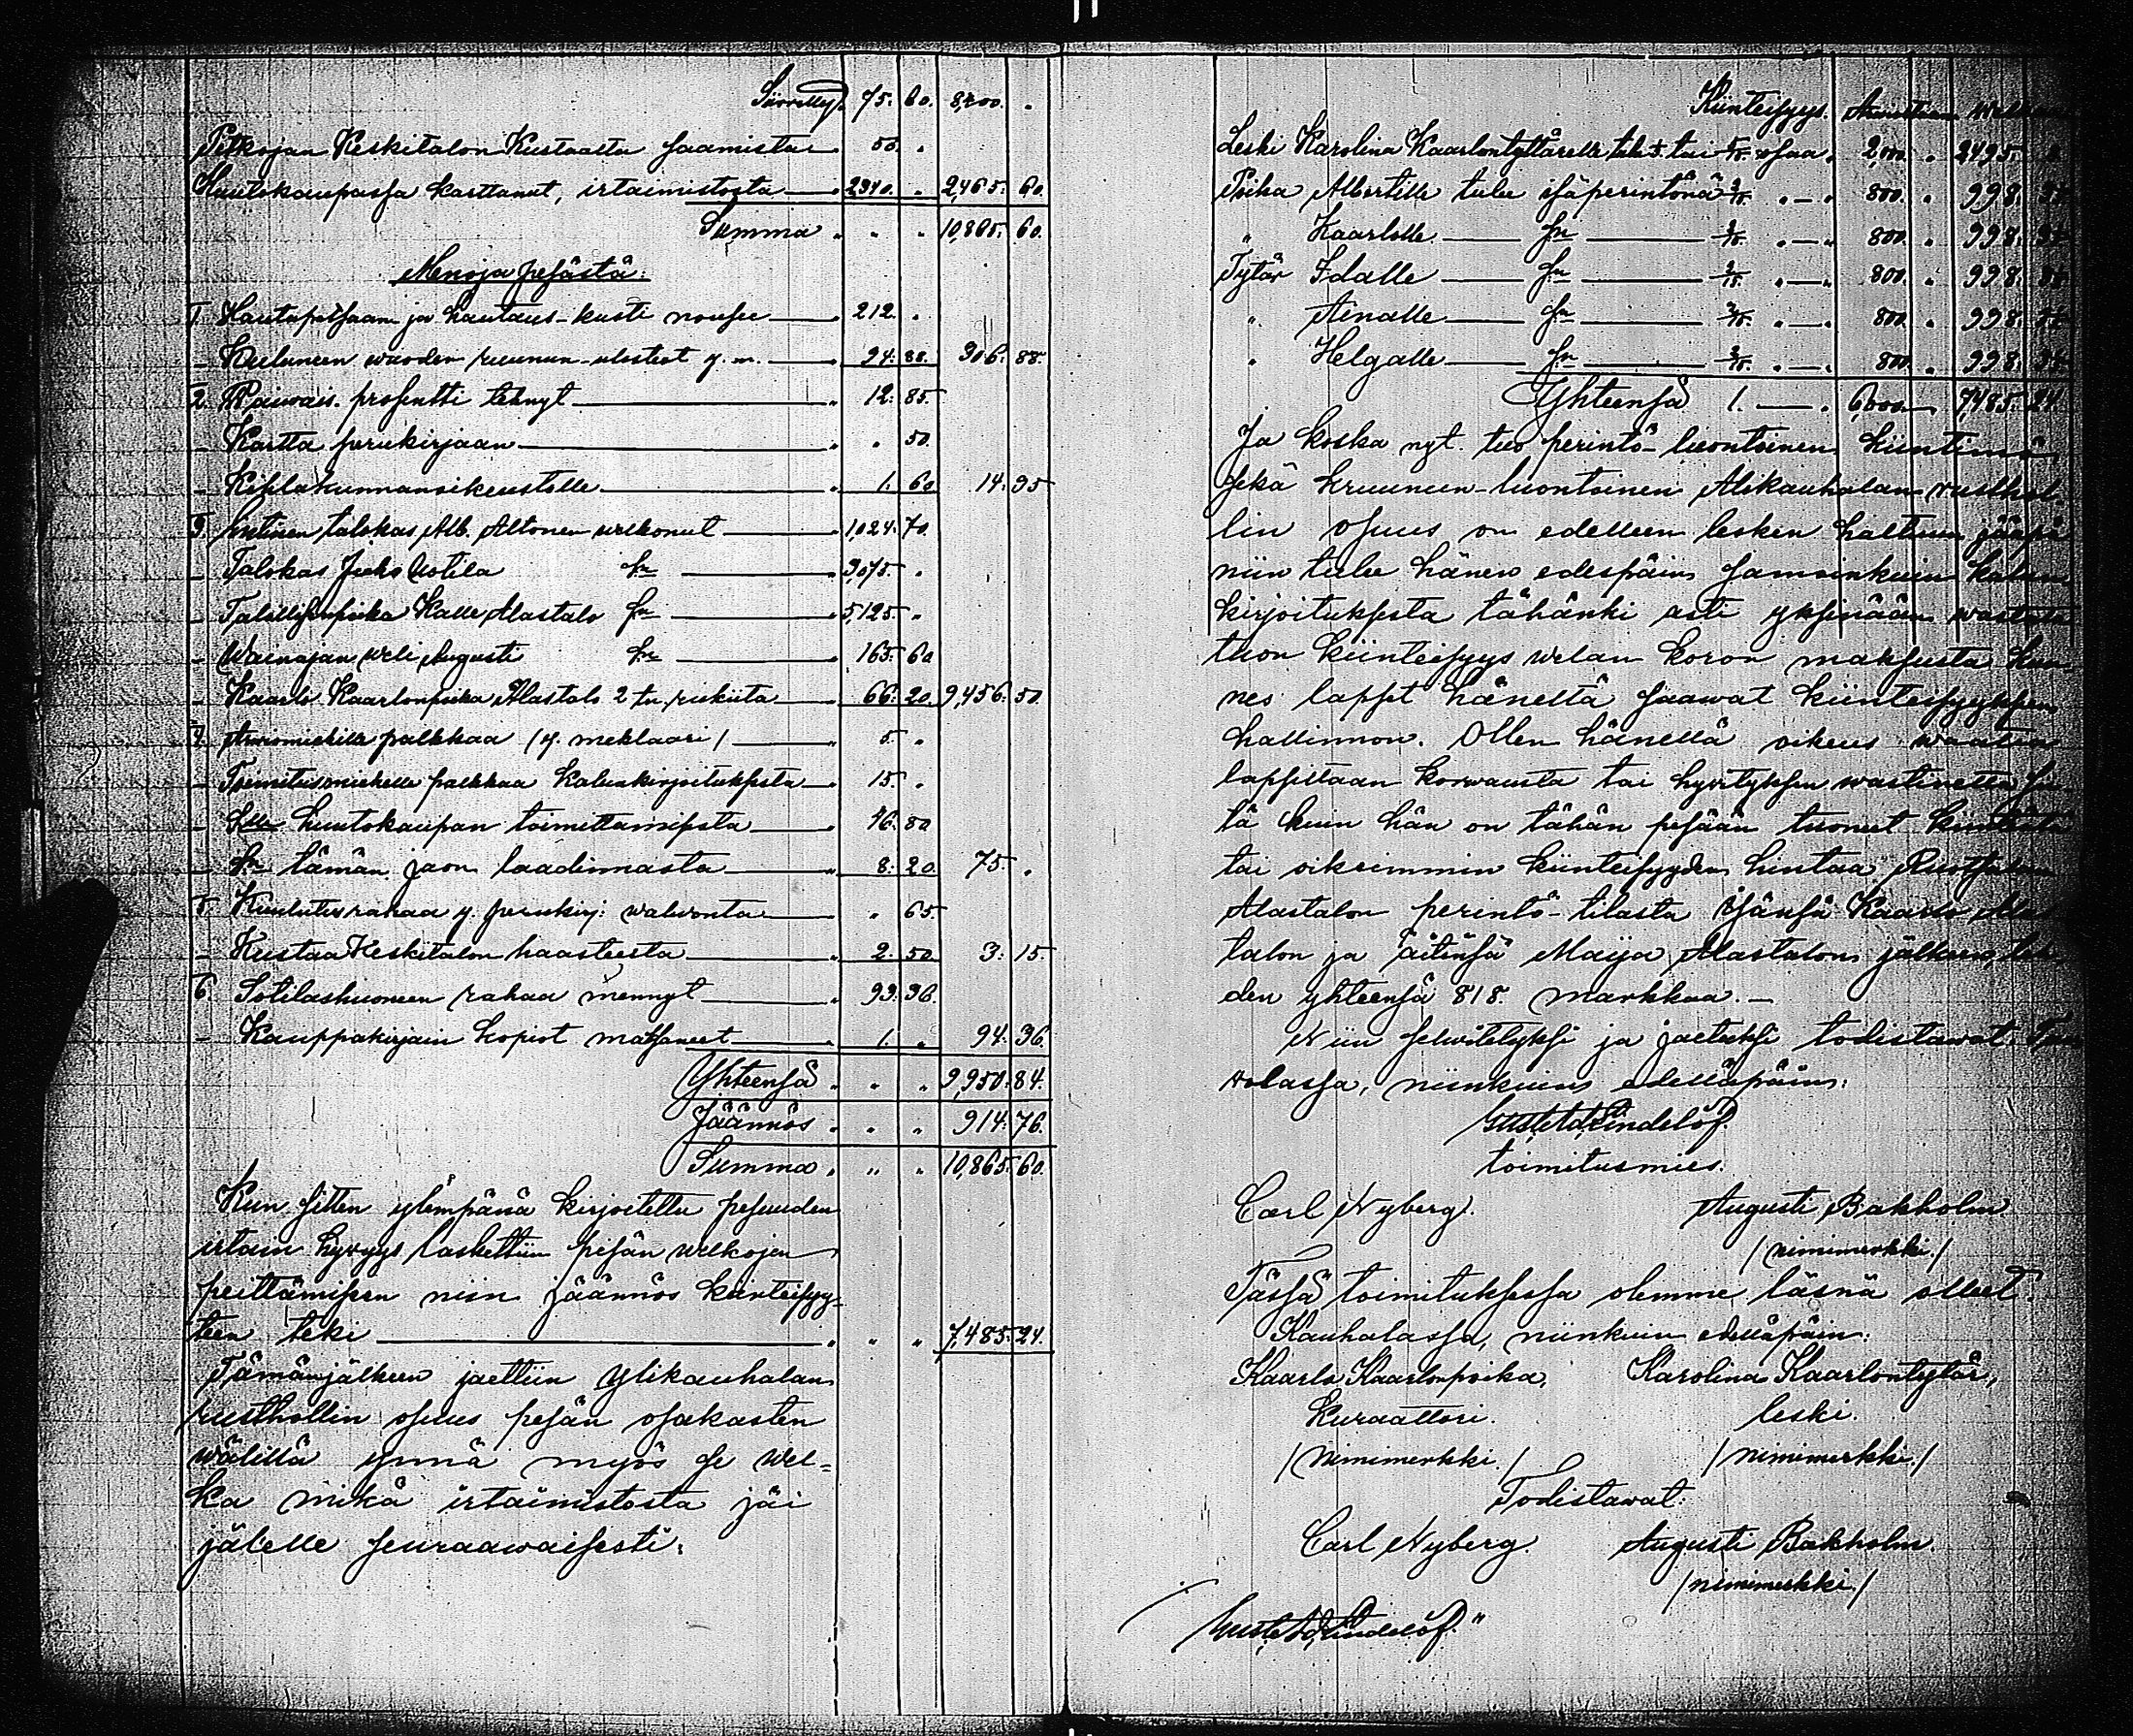 Siirretty. 75. 60. 8,400. "
Petkojan Keskitalon Kustaalta saamista 50. "
Huutokaupassa karttanut, irtaimistosta 2340. " 2,465. 60.
Summa " " " 10,865. 60.
Menoja pesästä:
1. Hautapaasaan ja hautaus-kusti nousee 212. "
– Kuluneen wuoden ruunun-ulosteot y. m. 94. 88. 306. 88.
2. Waiwais. prosentti tehnyt 12. 85.
– Kartta perukirjaan " 50.
– Kihlakunnanoikeustolle 1. 60. 14. 95
3. Entinen talokas Alb. Altonen welkonut 1,024. 70.
– Talokas Juho Uotila Sn 3,075. "
– Talollisenpoika Kalle Alastalo Sn 5,125. "
– Wainajan weli Augusti Sn 165. 60
– Kaarlo Kaarlonpoika Alastalo 2 tn. rukiita 66. 20. 9,456. 50.
4. Arwiomiehille palkkaa (y. meklaari) 5. "
– Toimitusmiehelle palkkaa kalunkirjoituksesta 15. "
– Slle huutokaupan toimittamisesta 46. 80
– Sn tämän jaon laadinnasta 8. 20. 75. "
5. Kuulutus rahaa y. perukirj: walwonta " 65.
– Kustaa Keskitalon haasteesta 2. 50. 3. 15.
6. Sotilashuoneen rahaa mennyt 93. 36.
– Kauppakirjain kopiot maksaneet 1. " 94. 36.
Yhteensä " " " 9,950. 84.
Jäännös " " " 914. 76.
Summa " " " 10,865. 60.
Kun sitten ylempänä kirjoitettu pesuuden
irtain hywyys laskettiin pesän welkojen
peittämiseen niin jäännös kiinteisyy=
teen teki " " " 7,485. 24.
Tämänjälkeen jaettiin Ylikauhalan
rusthollin osuus pesän osakasten
wälillä ynnä myös se wel=
ka mikä irtaimistosta jäi
jälelle seuraawaisesti:
Kiinteisyys.
Leski Karolina Kaarlontyttärelle tulee 1/3 tai 5/15 osaa. 2,000. " 2495.
Poika Albertille tulee isäperintönä 2/15 " – " 800. " 998.
" Kaarlolle Sn 2/15 " – " 800. " 998.
Tytär Idalle Sn 2/15 " – " 800. " 998.
" Ainalle Sn 2/15 " – " 800. " 998.
" Helgalle Sn 2/15 " – " 800. " 998.
Yhteensä 1. — " 6,000. 7,485. 24
Ja koska nyt tuo perintö-luontoinen kiintimä
sekä kruunun-luontoinen Alikauhalan rusthol-
lin osuus on edelleen lesken haltuun jääpä
niin tulee hänen edespäin samoinkuin kalun-
kirjoituksesta tähänki asti yksinään wastata
tuon kiinteisyys welan koron maksusta kun-
nes lapset häneltä saawat kiinteisyyksen
hallinnon. Ollen hänellä oikeus waatia
lapsiltaan korwausta tai hywityksen wastinetta sii-
tä kuin hän on tähän pesään tuonut
tai oikeimmin kiinteisyyden hintaa
Alastalon perintö-tilasta isänsä Kaarlo Alas-
talon ja äitinsä Maija Alastalon jälkeen, teh-
den yhteensä 818. markkaa. –
Niin selwitetyksi ja jaetuksi todistawat.
wolassa, niinkuin edelläpäin:
Gust. Ad. Lindelöf.
toimitusmies.
Carl Nyberg. Augusti Bakholm
/nimimerkki./
Tässä toimituksessa olemme läsnä olleet.
Kauhalassa, niinkuin edelläpäin:
Kaarlo Kaarlonpoika, Karolina Kaarlontytär,
Kuraattori. leski.
/Nimimerkki./ /nimimerkki./
Todistawat:
Carl Nyberg. Augusti Bakholm.
/nimimerkki./
Gust. Ad. Lindelöf."